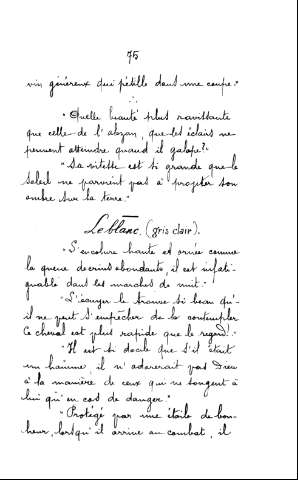 75
vin généreux qui pétille dans une coupe."
"Quelle beauté plus ravissante
que celle de l'alezan, que les éclairs ne
peuvent atteindre quand il galope?"
"Sa vitesse est si grande que le
soleil ne parvient pas à projeter son
ombre sur la terre."
Le blanc. (gris clair).
"S'encolure haute et ornée comme
la queue de crins abondants, il est infati-
guable dans les marches de nuit."
le trouve si beau qu'-
il ne peut s'empêcher de le contempler
Ce cheval est plus rapide que le regard."
"Il est si docile que s'il était
un homme, il n'adorerait pas Dieu
à la manière de ceux qui ne songent à
lui qu'en cas de danger."
"Protégé par une étoile de bon-
heur, lorsqu'il arrive au combat, il